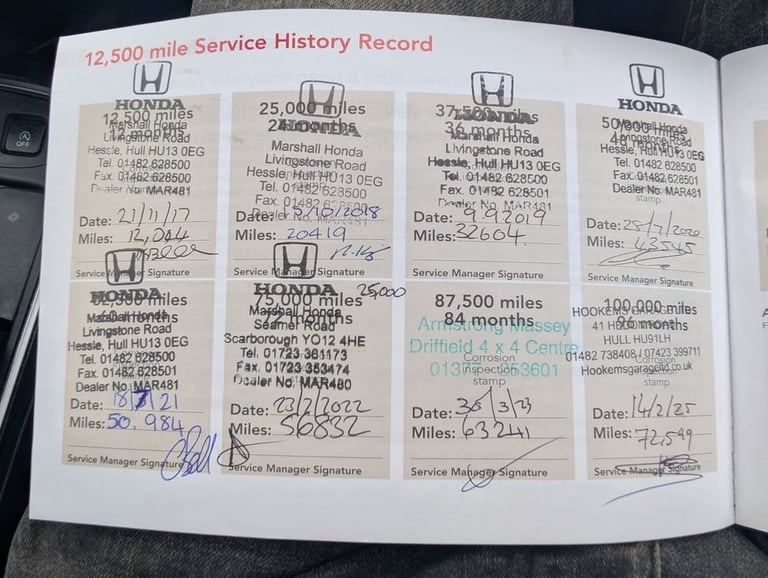 OFF
12,500 mile Service History Record
HONDA
12,500 miles
12 months
Marshall Honda
Livingstone Road
Hessle, Hull HU13 0EG
Tel. 01482 628500
Fax. 01482 628501
Dealer No. MAR481
Date: 21/11/17
Miles: 12,064
Service Manager Signature
HONDA
25,000 miles
24 months
Marshall Honda
Livingstone Road
Hessle, Hull HU13 0EG
Tel. 01482 628500
Fax. 01482 628501
Dealer No. MAR481
Date: 5/10/2018
Miles: 20419
Service Manager Signature
HONDA
37,500 miles
36 months
Marshall Honda
Livingstone Road
Hessle, Hull HU13 0EG
Tel. 01482 628500
Fax. 01482 628501
Dealer No. MAR481
Date: 9 9 2019
Miles: 32604
Service Manager Signature
HONDA
50,000 miles
Marshall Honda
Livingstone Road
Hessle, Hull HU13 0EG
Tel. 01482 628500
Fax. 01482 628501
Dealer No. MAR481
stamp
Date: 25/7/2020
Miles: 43545
Service Manager Signature
HONDA
62,500 miles
Marshall Honda
Livingstone Road
Hessle, Hull HU13 0EG
Tel. 01482 628500
Fax. 01482 628501
Dealer No. MAR481
Date: 18 7 21
Miles: 50,984
Service Manager Signature
HONDA
25,000
75,000 miles
months
Marshall Honda
Seamer Road
Scarborough YO12 4HE
Tel. 01723 381173
Fax. 01723 353474
Dealer No. MAR480
Date: 23/2/2022
Miles: 56832
Service Manager Signature
87,500 miles
84 months
Armstrong Massey
Driffield 4 x 4 Centre
Corrosion
inspection
stamp
Date: 30/3/23
Miles: 63241
Service Manager Signature
100,000 miles
96 months
HOOKEMS GARAGE
HULL HU9 1LH
01482 738408 / 07423 399711
Hookemsgarageltd.co.uk
stamp
Date: 14/2/25
Miles: 72,599
Service Manager Signature